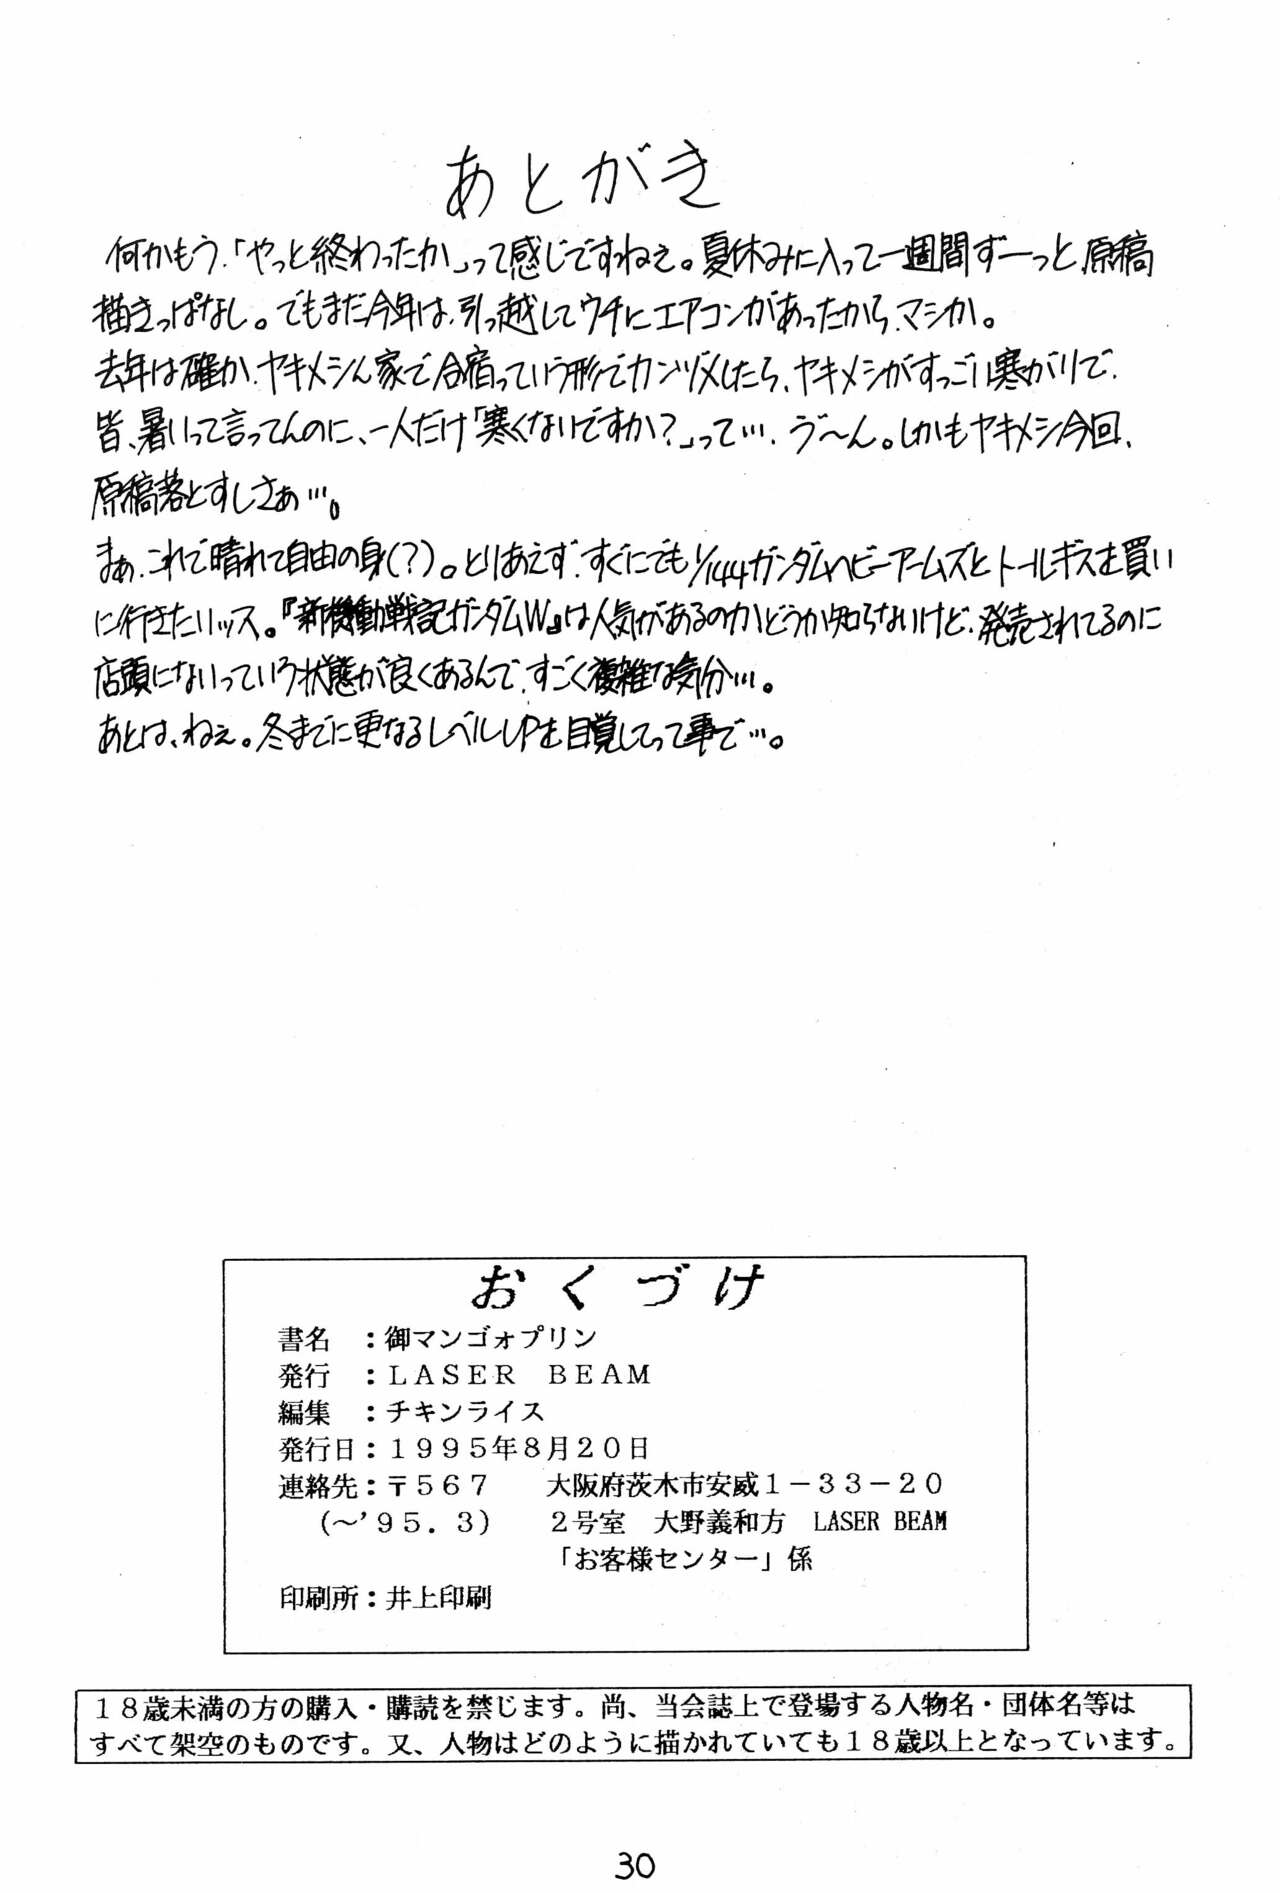 あとがき
何かもう、「やっと終わったか」って感じですねぇ。夏休みに入って一週間ずーっと、原稿
描きっぱなし。でもまだ今年は、引っ越してウチにエアコンがあったから、マシか。
去年は確か、ヤキメシん家で合宿っていう形でカンヅメしたら、ヤキメシがすっごい寒がりで、
皆、暑いって言ってんのに、一人だけ「寒くないですか?」って…。う〜ん。しかもヤキメシ今回、
原稿落とすしさぁ…。
まぁ、これで晴れて自由の身(?)。とりあえず、すぐにでも1/144ガンダムヘビーアームズとトールギスを買い
に行きたいッス。『新機動戦記ガンダムW』は人気があるのかどうか知らないけど、発売されてるのに
店頭にないっていう状態が良くあるんで、すごく複雑な気分…。
あとは、ねぇ。冬までに更なるレベルUPを目覚してって事で…。
おくづけ
書名　：御マンゴォプリン
発行　：ＬＡＳＥＲ　ＢＥＡＭ
編集　：チキンライス
発行日：１９９５年８月２０日
連絡先：〒５６７　　大阪府茨木市安威１－３３－２０
(～'９５．３)　　２号室　大野義和方　LASER BEAM
「お客様センター」係
印刷所：井上印刷
１８歳未満の方の購入・購読を禁じます。尚、当会誌上で登場する人物名・団体名等は
すべて架空のものです。又、人物はどのように描かれていても１８歳以上となっています。
30